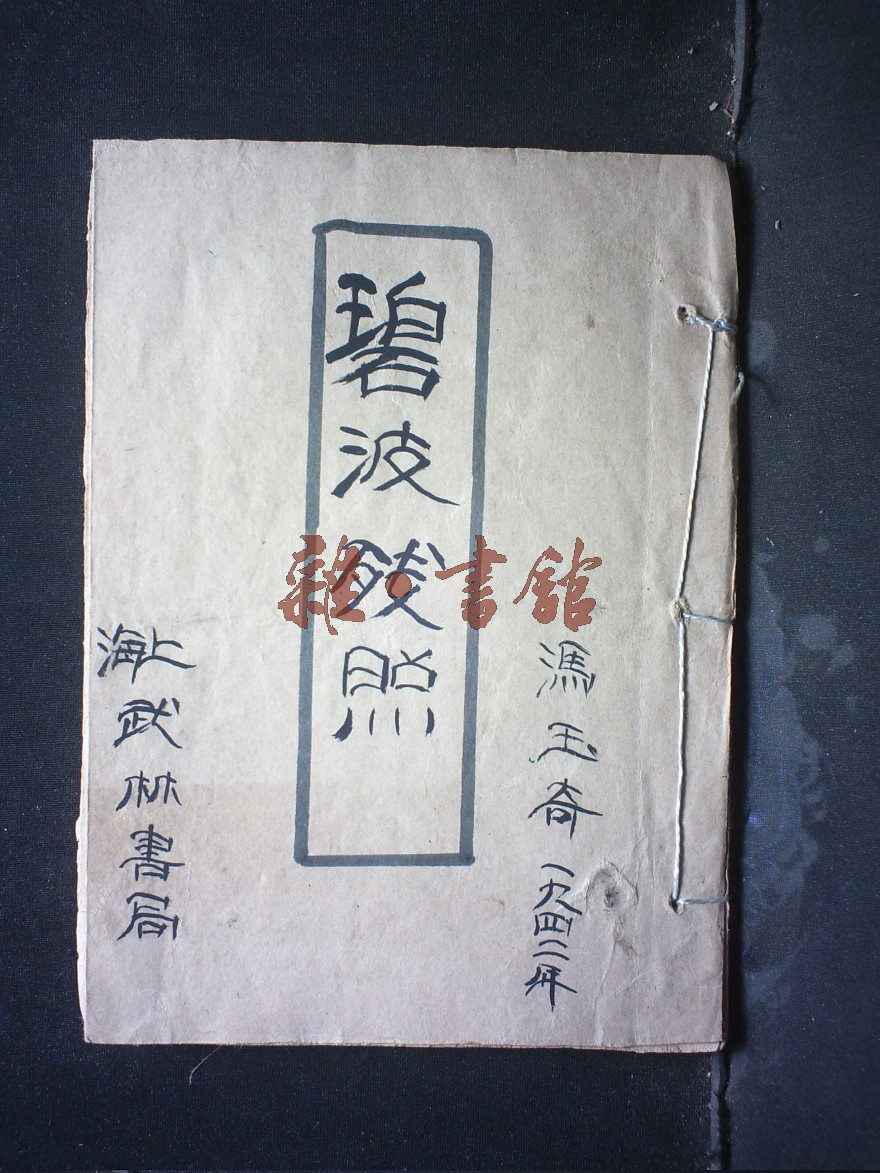 馮玉奇 一九四二年
碧波残照
上海武林書局
雜·書館